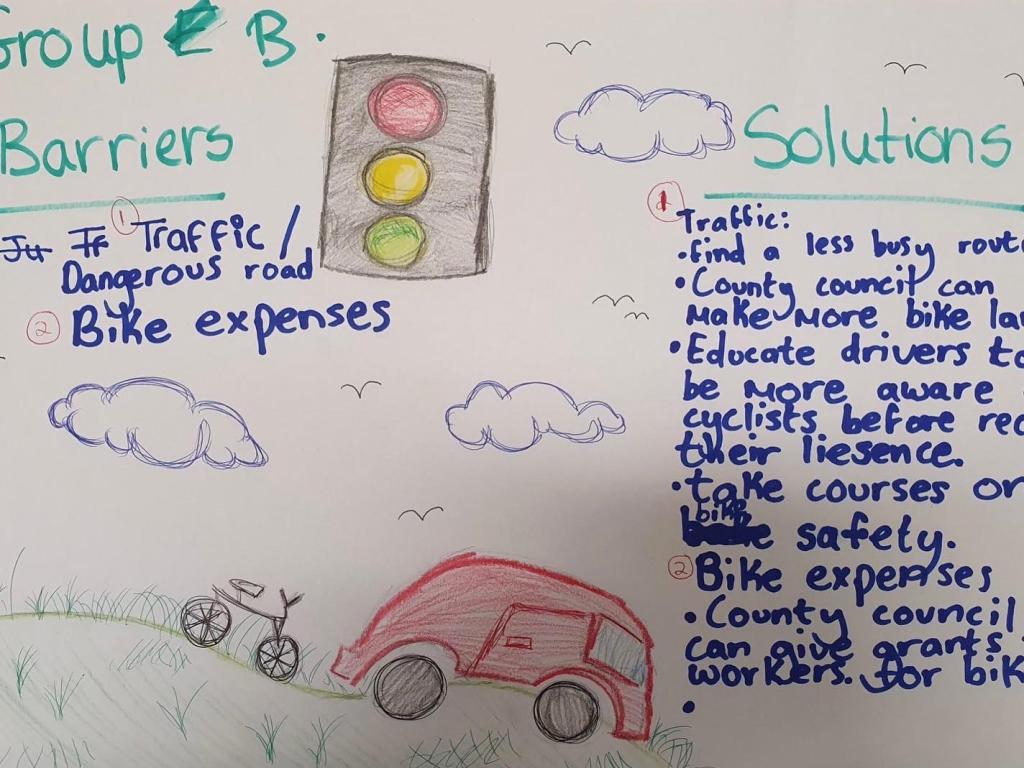 Group B.
Barriers
1 Traffic /
Dangerous road
2 Bike expenses
Solutions
1 Traffic:
• find a less busy route
• County council can
make more bike la
• Educate drivers to
be more aware
cyclists before rec
their liesence.
• take courses on
bike safety.
2 Bike expenses
• County council
can give grants
workers. for bik
•